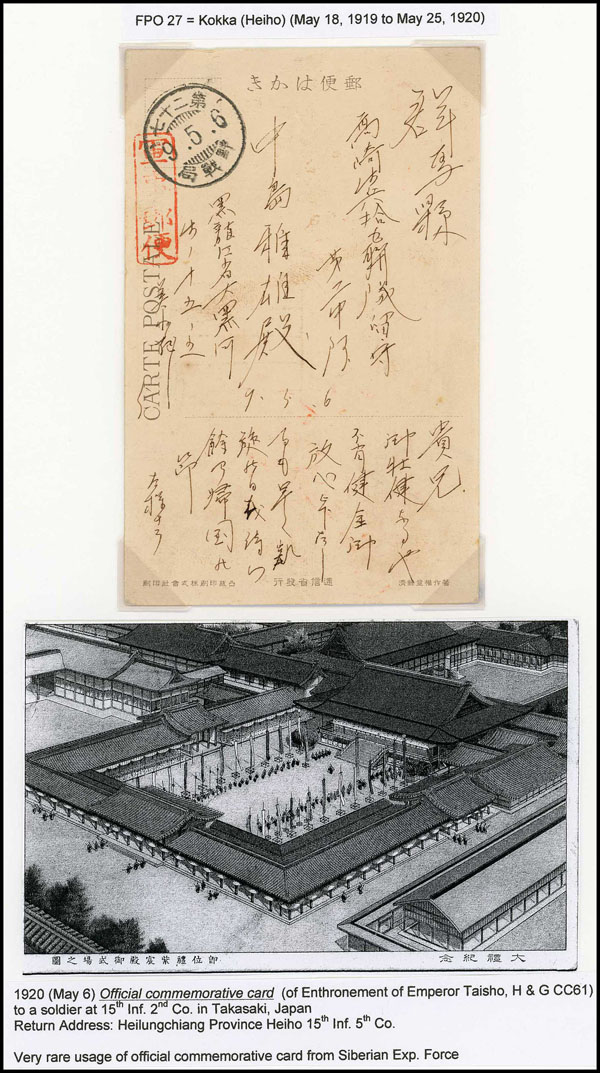 FPO 27 = Kokka (Heiho) (May 18, 1919 to May 25, 1920)
郵便はかき
第二十七
9.5.6
野戰局
軍事郵便
CARTE POSTALE
群馬縣
高崎歩兵拾五聯隊留守
第二中隊
中島雅雄殿
9. 5. 6
黒龍江省大黒河
歩、十五ノ五
貴兄
御壮健なるや
不肖健全御
放心下さい
餘の帰国
著作権登録濟
遞信省發行
凸版印刷株式會社印刷
大禮紀念
即位禮紫宸殿御式場之圖
1920 (May 6) Official commemorative card (of Enthronement of Emperor Taisho, H & G CC61)
to a soldier at 15th Inf. 2nd Co. in Takasaki, Japan
Return Address: Heilungchiang Province Heiho 15th Inf. 5th Co.
Very rare usage of official commemorative card from Siberian Exp. Force